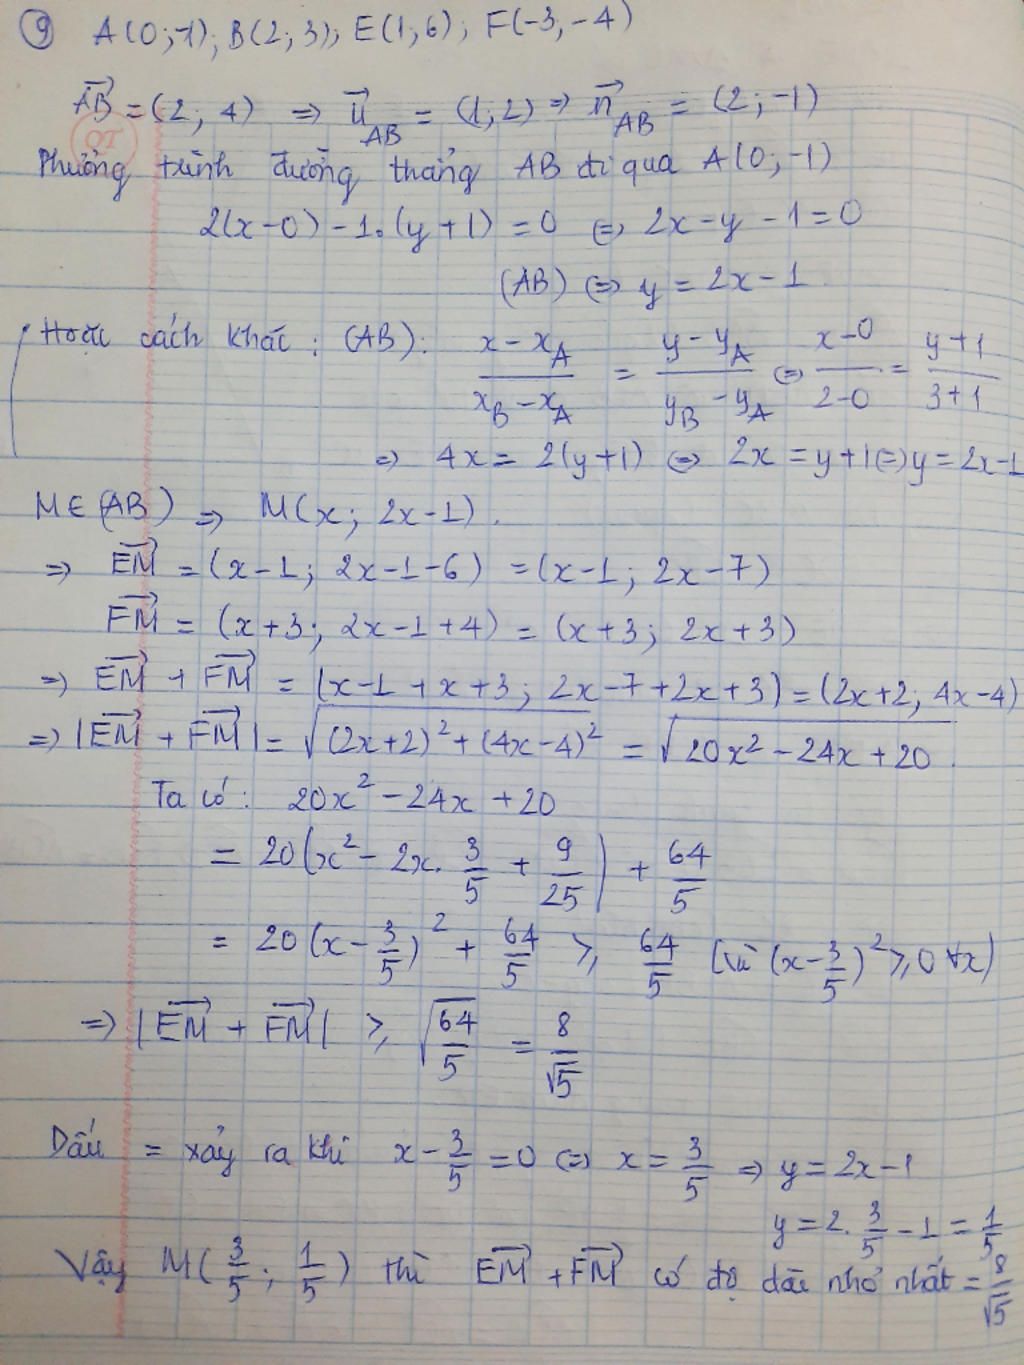 ⑨ A(0;-1); B(2;3); E(1;6); F(-3,-4)
→AB = (2; 4) ⇒ →u_AB = (1;2) ⇒ →n_AB = (2;-1)
QT
Phương trình đường thẳng AB đi qua A(0;-1)
2(x-0) - 1.(y+1) = 0 ⇔ 2x-y-1=0
(AB) ⇔ y = 2x-1
Hoặc cách khác: (AB): (x-x_A)/(x_B-x_A) = (y-y_A)/(y_B-y_A) ⇔ (x-0)/(2-0) = (y+1)/(3+1)
⇒ 4x = 2(y+1) ⇔ 2x = y+1 ⇔ y=2x-1
M∈(AB) ⇒ M(x; 2x-1).
⇒ →EM = (x-1; 2x-1-6) = (x-1; 2x-7)
→FM = (x+3; 2x-1+4) = (x+3; 2x+3)
⇒ →EM + →FM = (x-1+x+3; 2x-7+2x+3) = (2x+2; 4x-4)
⇒ |→EM + →FM| = √((2x+2)² + (4x-4)²) = √(20x² - 24x + 20).
Ta có: 20x² - 24x + 20
= 20(x² - 2x. 3/5 + 9/25) + 64/5
= 20(x - 3/5)² + 64/5 ⩾ 64/5 (vì (x-3/5)² ⩾ 0 ∀x)
⇒ |→EM + →FM| ⩾ √(64/5) = 8/√5
Dấu = xảy ra khi x - 3/5 = 0 ⇔ x = 3/5 ⇒ y = 2x-1
y = 2. 3/5 - 1 = 1/5
Vậy M(3/5; 1/5) thì →EM + →FM có độ dài nhỏ nhất = 8/√5